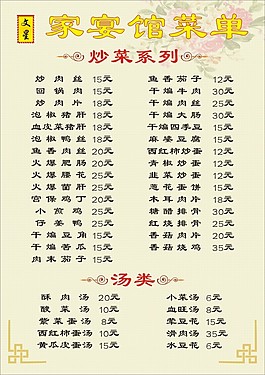 文星
家宴馆菜单
炒菜系列
炒肉丝 15元
回锅肉 15元
炒肉片 18元
泡椒猪肝 18元
血皮菜猪肝 18元
泡椒鸭血 15元
鱼香肉丝 20元
火爆肥肠 20元
火爆腰花 25元
火爆菌肝 25元
宫保鸡丁 20元
小煎鸡 25元
仔姜鸭 25元
干煸豆角 15元
干煸苦瓜 15元
肉末茄子 15元
鱼香茄子 12元
干煸牛肉 30元
干煸肉丝 25元
干煸四季豆 15元
麻婆豆腐 15元
西红柿炒蛋 12元
青椒炒蛋 12元
韭菜炒蛋 12元
葱花蛋饼 15元
木耳肉片 18元
糖醋排骨 30元
红烧排骨 25元
香菇肉片 20元
香菇烧鸡 35元
汤类
酥肉汤 20元
酸菜汤 10元
紫菜蛋汤 8元
西红柿蛋汤 10元
黄瓜皮蛋汤 15元
小菜汤 6元
血旺汤 8元
荤豆花 15元
滑肉汤 35元
水豆花 6元